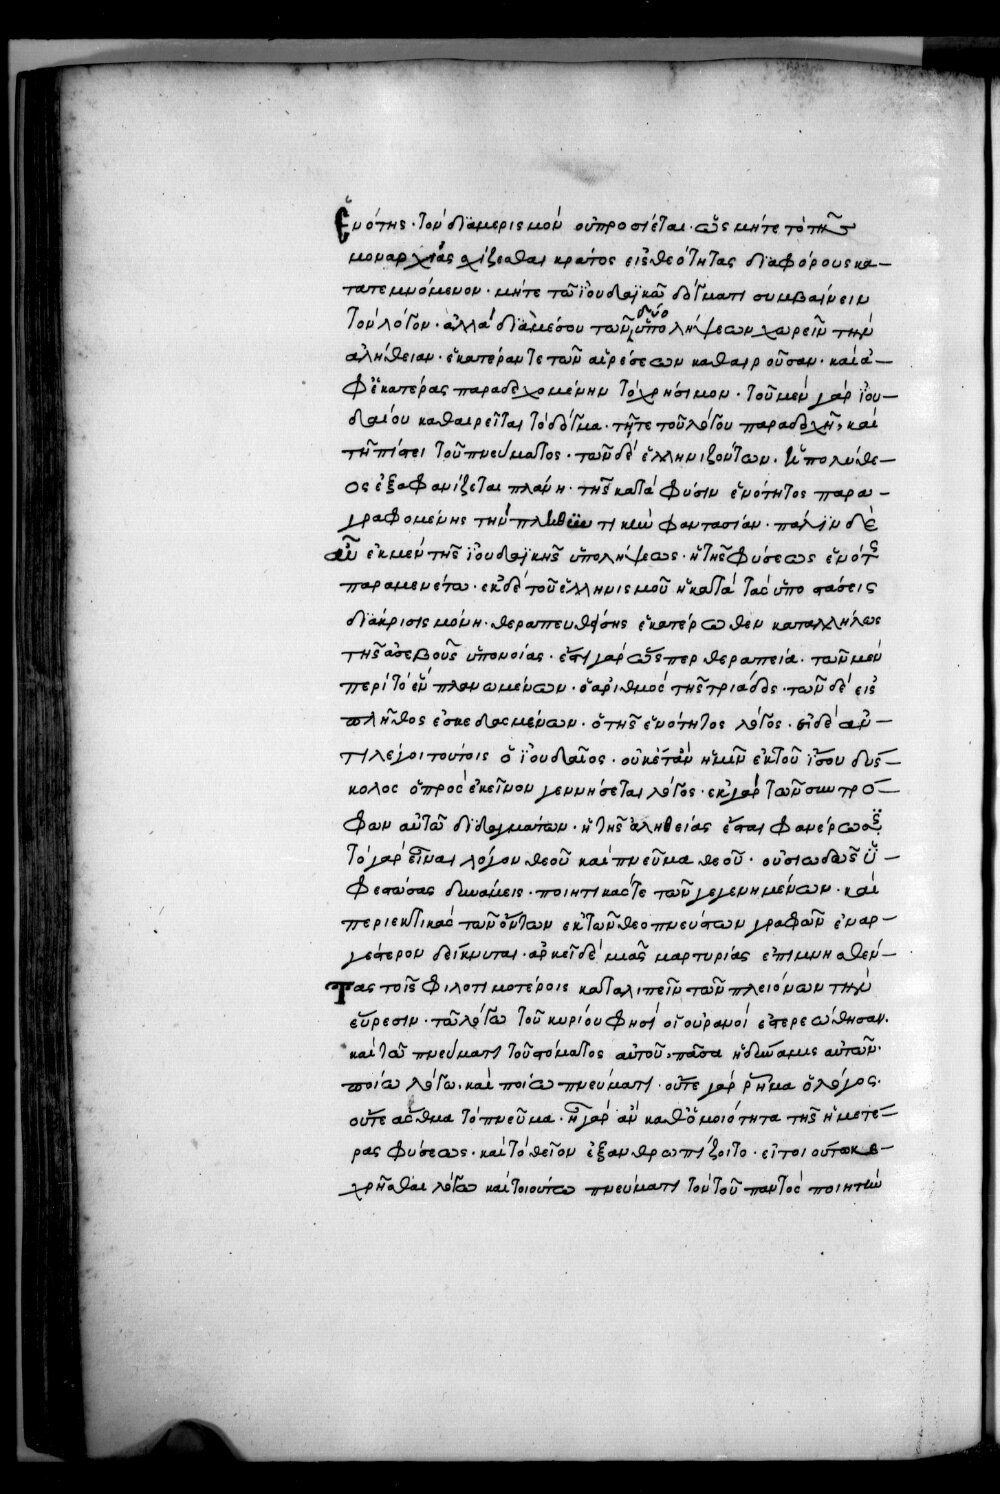 Ἑνότης· τὸν διαμερισμὸν οὐ προσίεται· ὡς μήτε τὸ τῆς
μοναρχίας σχίζεσθαι κράτος εἰς θεότητας διαφόρους κα-
τατεμνόμενον· μήτε τῶ ἰουδαϊκῶ δόγματι συμβαίνειν
τὸν λόγον· ἀλλὰ διὰ μέσου τῶν δύο ὑπολήψεων χωρεῖν τὴν
ἀλήθειαν· ἑκατέραν τε τῶν αἱρέσεων καθαιροῦσαν· καὶ ἀ-
φ' ἑκατέρας παραδεχομένην τὸ χρήσιμον· τοῦ μὲν γὰρ ἰου-
δαίου καθαιρεῖται τὸ δόγμα· τῆ τε τοῦ λόγου παραδοχῆ, καὶ
τῆ πίστει τοῦ πνεύματος· τῶν δὲ ἑλληνιζόντων· ἡ πολύθε-
ος ἐξαφανίζεται πλάνη· τῆς κατὰ φύσιν ἑνότητος παρα-
γραφομένης τὴν πληθυντικὴν φαντασίαν· πάλιν δὲ
αὖ ἐκ μὲν τῆς ἰουδαϊκῆς ὑπολήψεως· ἡ τῆς φύσεως ἑνότης
παραμενέτω· ἐκ δὲ τοῦ ἑλληνισμοῦ ἡ κατὰ τὰς ὑποστάσεις
διάκρισις μόνη· θεραπευθείσης ἑκατέρωθεν καταλλήλως
τῆς ἀσεβοῦς ὑπονοίας· ἔστι γὰρ ὥσπερ θεραπεία· τῶν μὲν
περὶ τὸ ἓν πλανωμένων· ὁ ἀριθμὸς τῆς τριάδος· τῶν δὲ εἰς
πλῆθος ἐσκεδασμένων· ὁ τῆς ἑνότητος λόγος· εἰ δὲ ἀν-
τιλέγοι τούτοις ὁ ἰουδαῖος· οὐκέτ' ἂν ἡμῖν ἐκ τοῦ ἴσου δύσ-
κολος ὁ πρὸς ἐκεῖνον γεννήσεται λόγος· ἐκ γὰρ τῶν συντρό-
φων αὐτῶ διδαγμάτων· ἡ τῆς ἀληθείας ἔσται φανέρωσις
τὸ γὰρ εἶναι λόγον θεοῦ καὶ πνεῦμα θεοῦ· οὐσιωδῶς ὑ-
φεστώσας δυνάμεις· ποιητικάς τε τῶν γεγενημένων· καὶ
περιεκτικὰς τῶν ὄντων ἐκ τῶν θεοπνεύστων γραφῶν ἐναρ-
γέστερον δείκνυται· ἀρκεῖ δὲ μιᾶς μαρτυρίας ἐπιμνησθέν-
Τας τοῖς φιλοτιμοτέροις καταλιπεῖν τῶν πλειόνων τὴν
εὕρεσιν· τῶ λόγω τοῦ κυρίου φησὶ οἱ οὐρανοὶ ἐστερεώθησαν.
καὶ τῶ πνεύματι τοῦ στόματος αὐτοῦ, πᾶσα ἡ δύναμις αὐτῶν·
ποίω λόγω, καὶ ποίω πνεύματι· οὔτε γὰρ ῥῆμα ὁ λόγος·
οὔτε ἄσθμα τὸ πνεῦμα· ἦ γὰρ ἂν καθ' ὁμοιότητα τῆς ἡμετέ-
ρας φύσεως· καὶ τὸ θεῖον ἐξανθρωπίζοιτο· εἴτοι οὕτω κε-
χρῆσθαι λόγω καὶ τοιούτω πνεύματι τὸν τοῦ παντὸς ποιητὴν